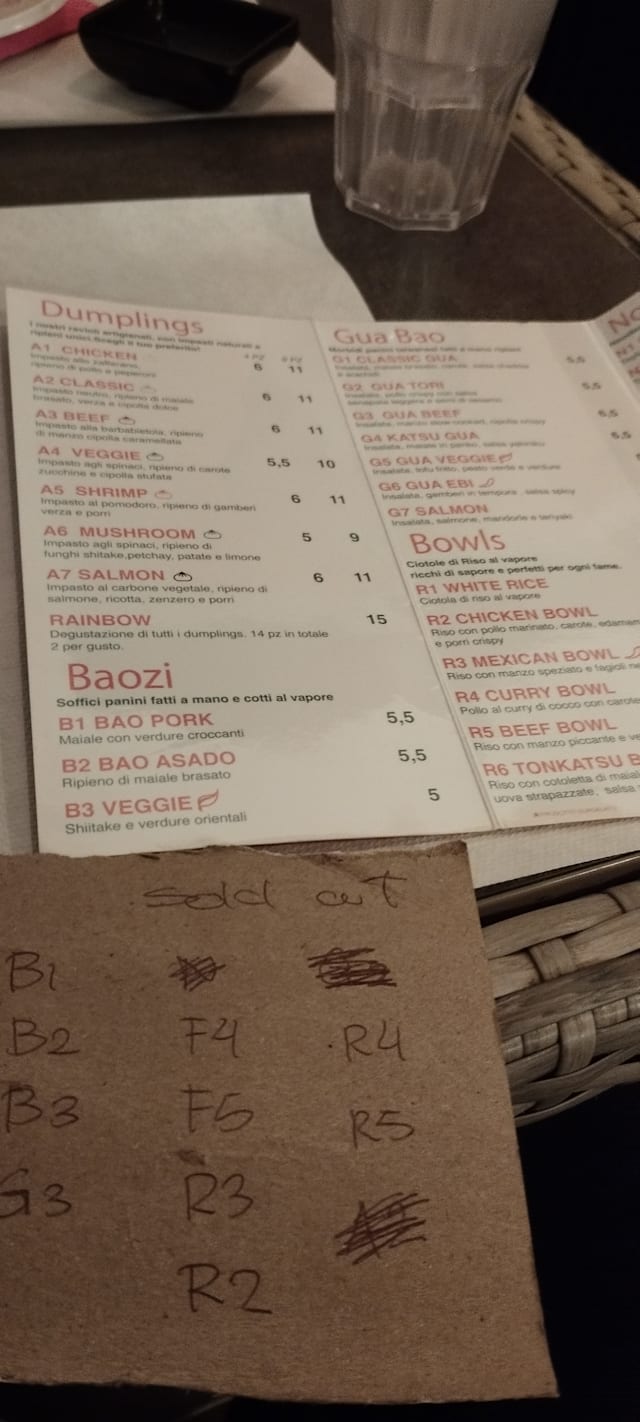 Dumplings
I nostri ravioli artigianali, con impasti naturali e
ripieni unici. Scegli il tuo preferito!
A1 CHICKEN 6 11
Impasto allo zafferano,
ripieno di pollo e peperoni
A2 CLASSIC 6 11
Impasto neutro, ripieno di maiale
brasato, verza e cipolla dolce
A3 BEEF 6 11
Impasto alla barbabietola, ripieno
di manzo cipolla caramellata
A4 VEGGIE 5,5 10
Impasto agli spinaci, ripieno di carote
zucchine e cipolla stufata
A5 SHRIMP 6 11
Impasto al pomodoro, ripieno di gamberi
verza e porri
A6 MUSHROOM 5 9
Impasto agli spinaci, ripieno di
funghi shitake,petchay, patate e limone
A7 SALMON 6 11
Impasto al carbone vegetale, ripieno di
salmone, ricotta, zenzero e porri
RAINBOW 15
Degustazione di tutti i dumplings. 14 pz in totale
2 per gusto.
Baozi
Soffici panini fatti a mano e cotti al vapore
B1 BAO PORK 5,5
Maiale con verdure croccanti
B2 BAO ASADO 5,5
Ripieno di maiale brasato
B3 VEGGIE 5
Shiitake e verdure orientali
Gua Bao
G1 CLASSIC GUA 5,5
G2 GUA TORI 5,5
G3 GUA BEEF 6,5
Insalata, manzo slow cooked, cipolla crispy
G4 KATSU GUA 6,5
Insalata, maiale in panko, salsa
G5 GUA VEGGIE
Insalata, tofu fritto, pesto verde e verdure
G6 GUA EBI
Insalata, gamberi in tempura, salsa spicy
G7 SALMON
Insalata, salmone, mandorle e teriyaki
Bowls
Ciotole di Riso al vapore
ricchi di sapore e perfetti per ogni fame.
R1 WHITE RICE
Ciotola di riso al vapore
R2 CHICKEN BOWL
Riso con pollo marinato, carote, edamam
e porri crispy
R3 MEXICAN BOWL
Riso con manzo speziato e fagioli ne
R4 CURRY BOWL
Pollo al curry di cocco con carote
R5 BEEF BOWL
Riso con manzo piccante e ve
R6 TONKATSU B
Riso con cotoletta di maial
uova strapazzate, salsa
sold out
B1
B2 F4 R4
B3 F5 R5
G3 R3
R2